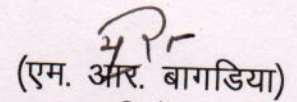 (एम. आर. बागडिया)